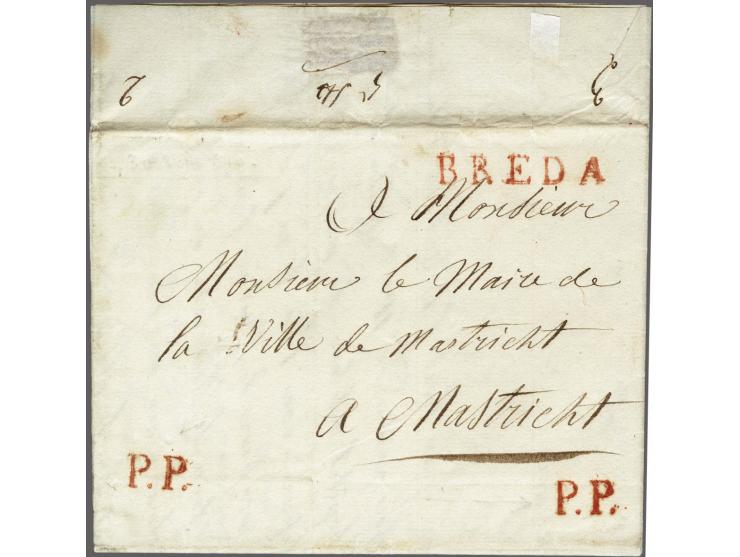 BREDA
A Monsieur
Monsieur le Maire de
la Ville de Mastricht
a Mastricht
P.P.
P.P.